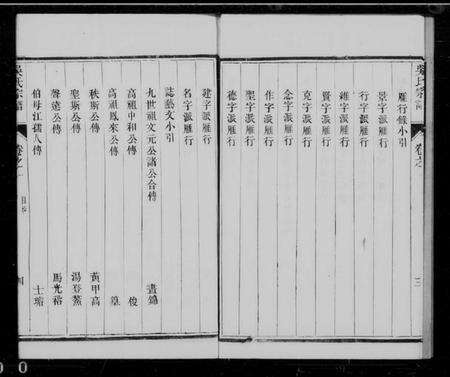 吳氏宗譜
卷之
三
雁行錄小引
景字派雁行
行字派雁行
維字派雁行
賢字派雁行
克字派雁行
念字派雁行
作字派雁行
聖字派雁行
德字派雁行
建字派雁行
名字派雁行
誌藝文小引
九世祖文元公諸公合傳 晝錦
高祖中和公傳 俊
高祖鳳來公傳
秩斯公傳 黃甲高
聖斯公傳 湯登
聲遠公傳 馬光裕
伯母江孺人傳 士瑞
吳氏宗譜
卷之
目次
四
0 0